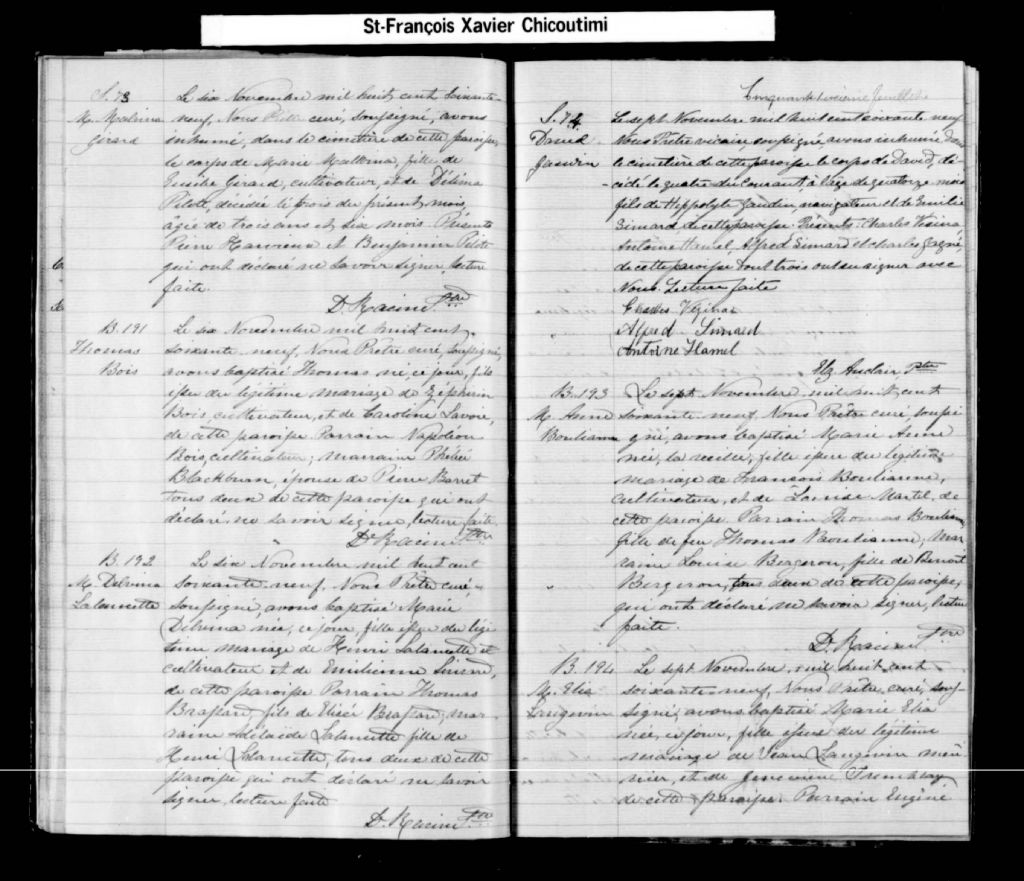 St-François Xavier Chicoutimi
S. 73
M. Malvina
Girard
Le six Novembre mil huit cent soixante-
neuf, Nous Prêtre curé, soussigné, avons
inhumé, dans le cimetière de cette paroisse,
le corps de Marie Malvina, fille de
Eusèbe Girard, cultivateur, et de Délima
Pilote, décédée le trois du présent mois,
âgée de trois ans et six mois. Présents
Pierre et Benjamin Pilote
qui ont déclaré ne savoir signer, lecture
faite.
D. Racine Ptre
B. 191
Thomas
Bois
Le six Novembre mil huit cent
soixante neuf, Nous Prêtre curé, soussigné,
avons baptisé Thomas né, ce jour, fils
issu du légitime mariage de Zéphirin
Bois, cultivateur, et de Caroline Savoie,
de cette paroisse. Parrain Napoléon
Bois, cultivateur; marraine
Blackburn, épouse de Pierre Barret
tous deux de cette paroisse qui ont
déclaré ne savoir signer, lecture faite.
D. Racine Ptre
B. 192
M. Delvina
Lalancette
Le six Novembre mil huit cent
soixante neuf, Nous Prêtre curé,
soussigné, avons baptisé Marie
Delvina née, ce jour, fille issue du légi
time mariage de Henri Lalancette
cultivateur et de Emilienne Simard,
de cette paroisse Parrain Thomas
Brassard, fils de Elisée Brassard; mar-
raine Adelaide Lalancette fille de
Henri Lalancette, tous deux de cette
paroisse qui ont déclaré ne savoir
signer, lecture faite
D. Racine Ptre
feuillet
S. 74
David
Gaudin
Le sept Novembre mil huit cent soixante neuf
Nous Prêtre vicaire soussigné, avons inhumé dans
le cimetière de cette paroisse le corps de David, dé-
-cédé le quatre du courant, à l'âge de quatorze mois
fils de Hippolyte Gaudin, navigateur et de Emilie
Simard de cette paroisse. Présents: Charles Vésina
Antoine Hamel, Alfred Simard et Charles Gagné,
de cette paroisse dont trois ont su signer avec
Nous. Lecture faite
Charles Vézina
Alfred Simard
Antoine Hamel
Elz Auclair Ptre
B. 193
M. Anne
Boulianne
Le sept Novembre mil huit cent
soixante neuf, Nous Prêtre curé soussi
gné, avons baptisé Marie Anne
née, la veille, fille issue du légitime
mariage de François Boulianne,
cultivateur, et de Louise Martel, de
cette paroisse. Parrain Thomas Boulianne,
fille de feu Thomas Boulianne, mar
raine Louise Bergeron, fille de Benoit
Bergeron, tous deux de cette paroisse,
qui ont déclaré ne savoir signer, lecture
faite.
D. Racine Ptre
B. 194
M. Elia
Langevin
Le sept Novembre, mil huit cent
soixante-neuf, Nous Prêtre, curé, sous-
signé, avons baptisé Marie Elia
née, ce jour, fille issue du légitime
mariage de Jean Langevin meu
nier, et de Genevieve Tremblay
de cette paroisse. Parrain Eugène